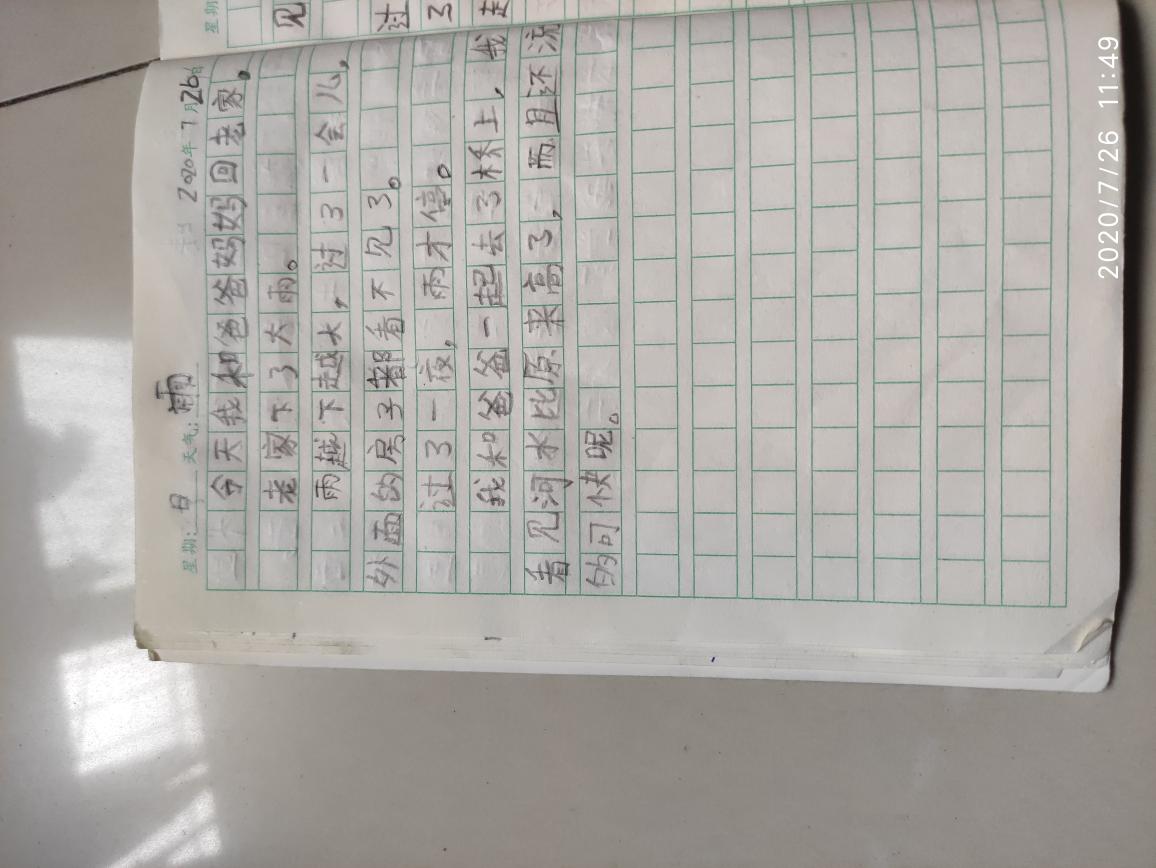 星期
见
过
了
星期: 日 天气: 雨 2020年7月26日
今天我和爸爸妈妈回老家。
老家下了大雨。
雨越下越大，过了一会儿，
外面的房子都看不见了。
过了一夜，雨才停。
我和爸爸一起去了桥上，我
看见河水比原来高了，而且还流
的可快呢。
2020/7/26 11:49